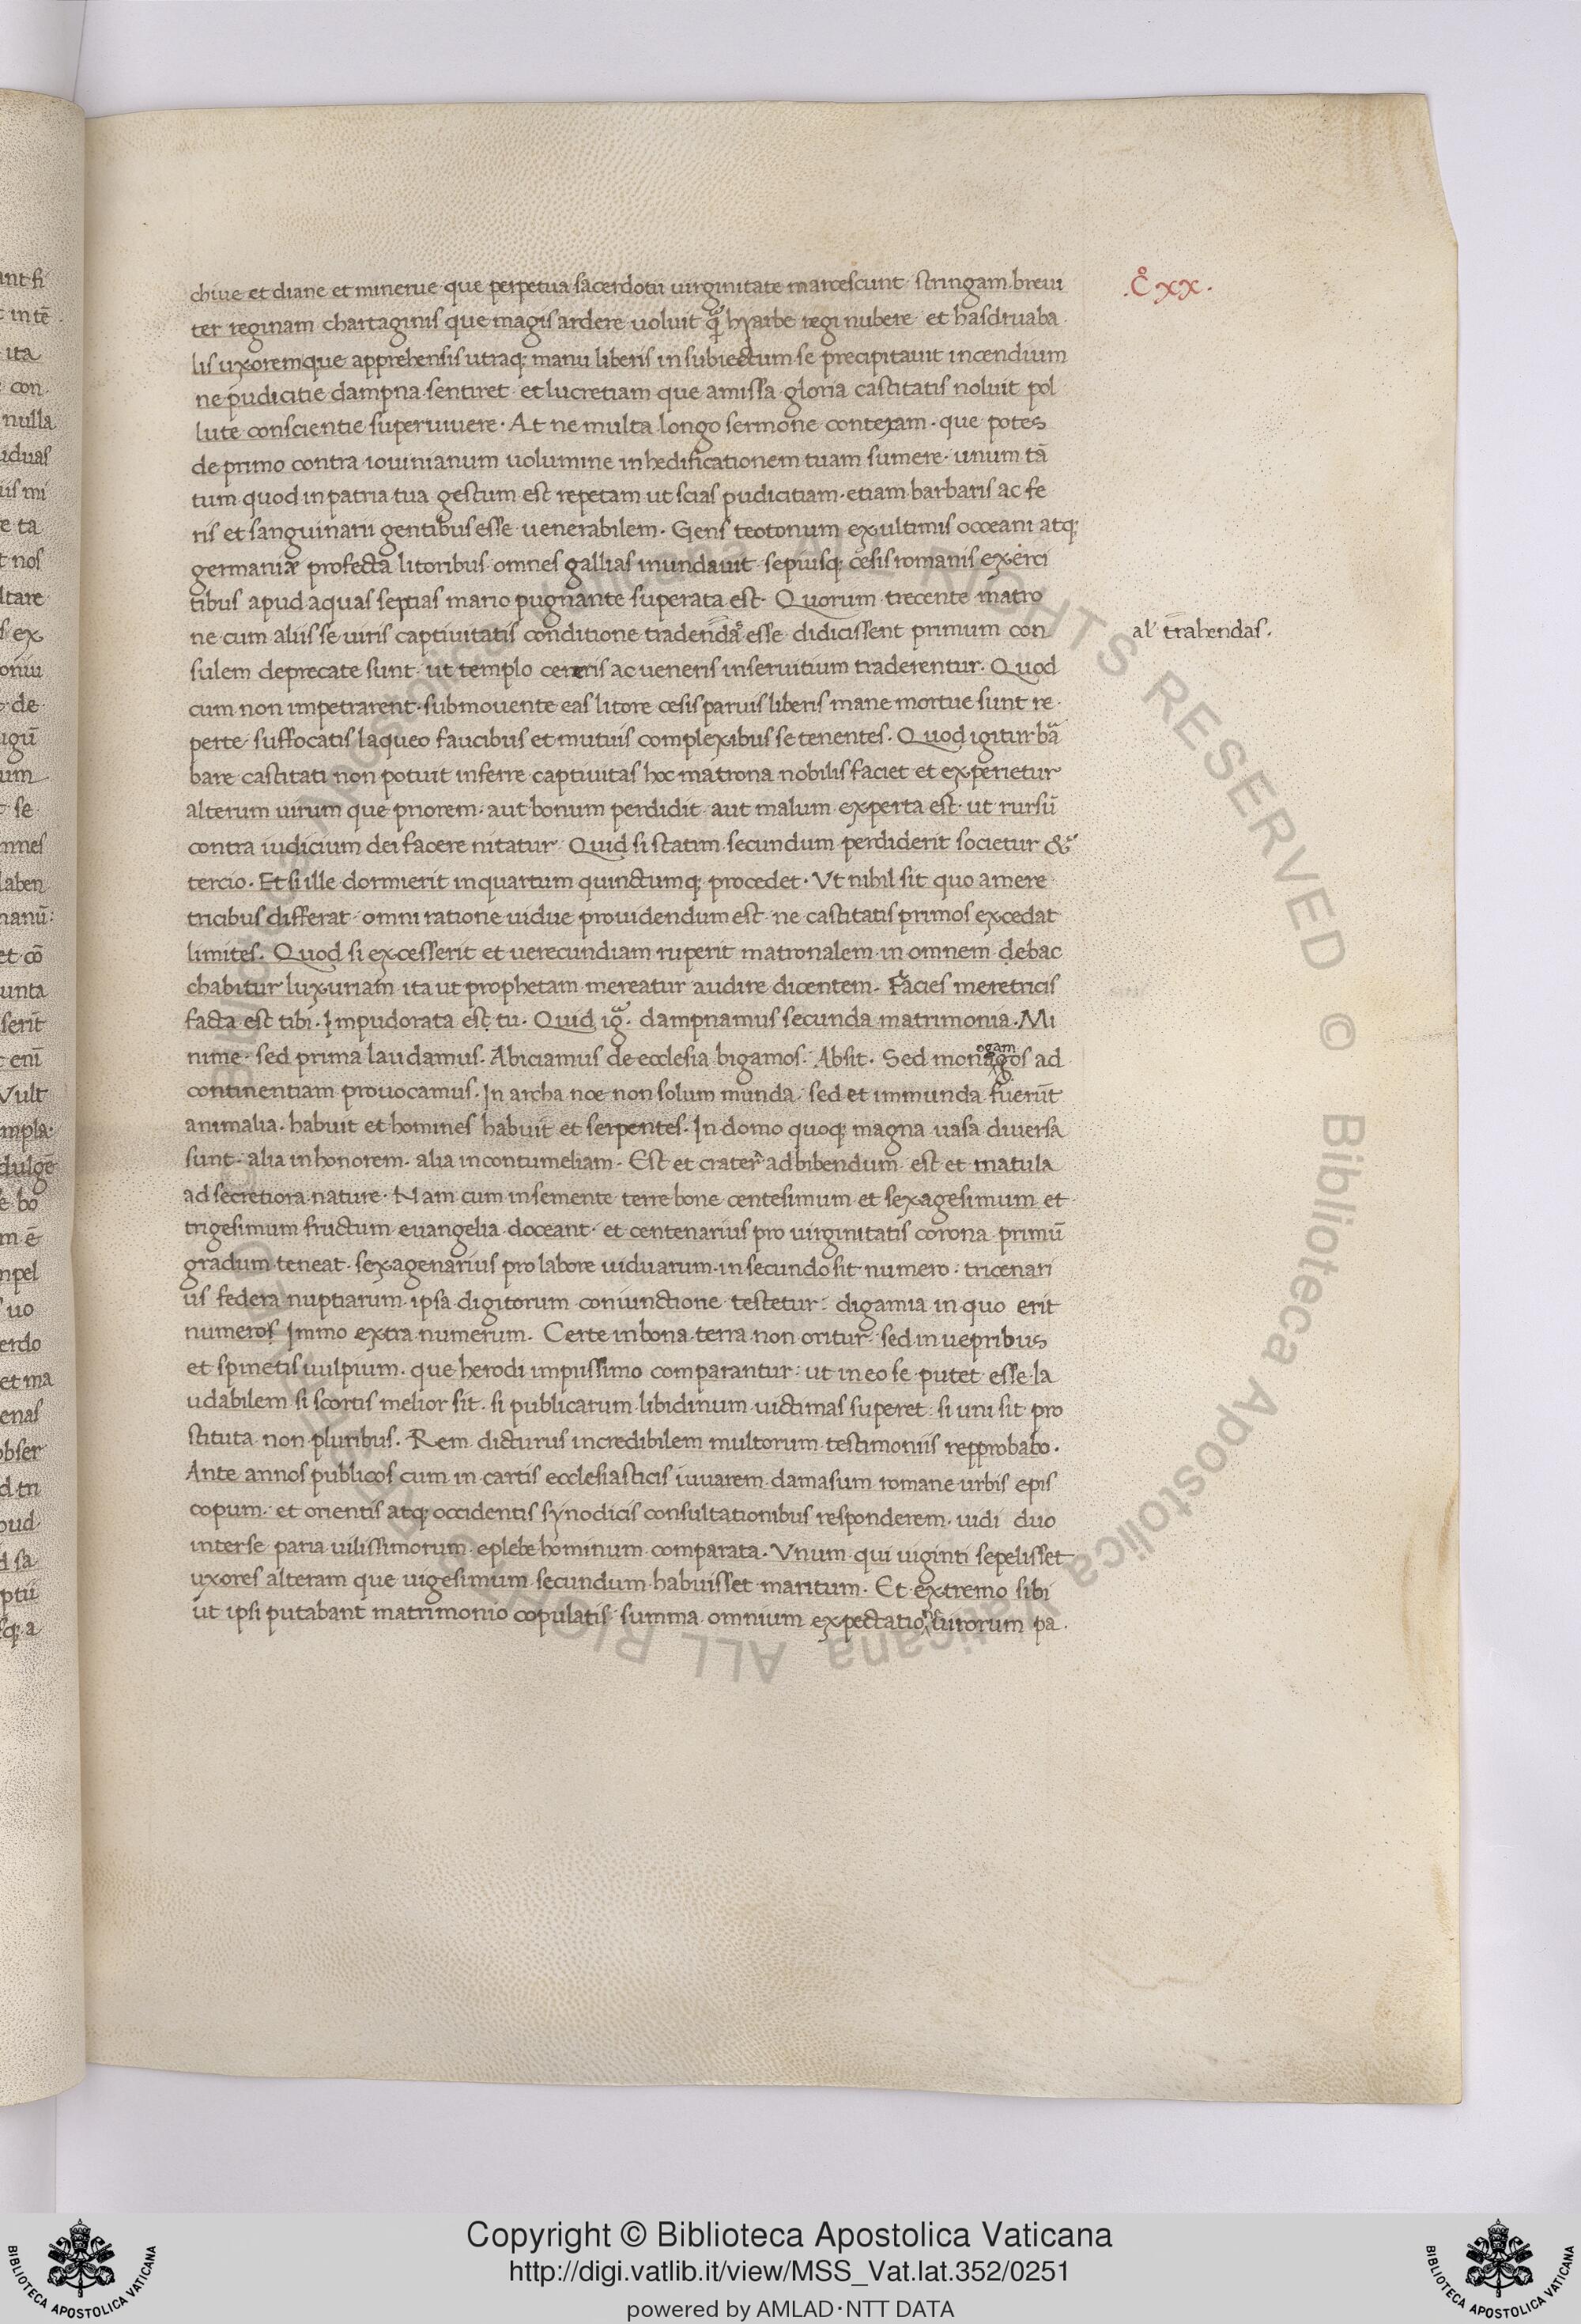 .C̊ xx.
chiue et diane et minerue que perpetua sacerdotii uirginitate marcescunt stringam breui
ter reginam chartaginis que magis ardere uoluit q̃ hyarbe regi nubere et hasdruaba
lis uxoremque apprehensis utraq; manu liberis in subiectum se precipitauit incendium
ne pudicitie dampna sentiret et lucretiam que amissa gloria castitatis noluit pol
lute conscientie superuiuere. At ne multa longo sermone contexam. que potes
de primo contra iouinianum uolumine in hedificationem tuam sumere. unum tā
tum quod in patria tua gestum est repetam ut scias pudicitiam etiam barbaris ac fe
ris et sanguinarii gentibus esse uenerabilem. Gens teotonum ex ultimis occeani atq;
germaniæ profecta litoribus omnes gallias inundauit sepiusq; cesis romanis exerci
tibus apud aquas septias mario pugnante superata est. Quorum trecente matro
ne cum aliis se uiris captiuitatis conditione tradendas esse didicissent primum con
al' trahendas.
sulem deprecate sunt ut templo cereris ac ueneris in seruitium traderentur. Quod
cum non impetrarent submouente eas litore cesis paruis liberis mane mortue sunt re
perte suffocatis laqueo faucibus et mutuis complexibus se tenentes. Quod igitur ba
bare castitati non potuit inferre captiuitas hoc matrona nobilis faciet et experietur
alterum uirum que priorem aut bonum perdidit aut malum experta est ut rursū
contra iudicium dei facere nitatur Quid si statim secundum perdiderit societur &
tercio. Et si ille dormierit in quartum quinctumq; procedet. Vt nihil sit quo a mere
tricibus differat omni ratione uidue prouidendum est ne castitatis primos excedat
limites. Quod si excesserit et uerecundiam ruperit matronalem in omnem debac
chabitur luxuriam ita ut prophetam mereatur audire dicentem. Facies meretricis
facta est tibi. Impudorata est tu. Quid ig̃. dampnamus secunda matrimonia. Mi
nime sed prima laudamus. Abiciamus de ecclesia bigamos. Absit. Sed monagos ad
ogam
continentiam prouocamus. In archa noe non solum munda sed et immunda fuerūt
animalia. habuit et homines habuit et serpentes. In domo quoq; magna uasa diuersa
sunt alia in honorem alia in contumeliam. Est et crater ad bibendum est et matula
ad secretiora nature. Nam cum in semente terre bone centesimum et sexagesimum et
trigesimum fructum euangelia doceant et centenarius pro uirginitatis corona primū
gradum teneat sexagenarius pro labore uiduarum in secundo sit numero: tricenari
us federa nuptiarum ipsa digitorum coniunctione testetur: digamia in quo erit
numeros Immo extra numerum. Certe in bona terra non oritur sed in uepribus
et spinetis uulpium. que herodi impiissimo comparantur: ut in eo se putet esse la
udabilem si scortis melior sit. si publicarum libidinum uictimas superet: si uni sit pro
stituta non pluribus. Rem dicturus incredibilem multorum testimoniis repprobabo.
Ante annos publicos cum in cartis ecclesiasticis iuuarem damasum romane urbis epis
copum. et orientis atq; occidentis synodicis consultationibus responderem. uidi duo
inter se paria uilissimorum e plebe hominum comparata. Vnum qui uiginti sepelisset
uxores alteram que uigesimum secundum habuisset maritum. Et extremo sibi
ut ipsi putabant matrimonio copulatis summa omnium expectatio uirorum pa.
Copyright © Biblioteca Apostolica Vaticana
http://digi.vatlib.it/view/MSS_Vat.lat.352/0251
powered by AMLAD·NTT DATA
BIBLIOTECA APOSTOLICA VATICANA
BIBLIOTECA APOSTOLICA VATICANA